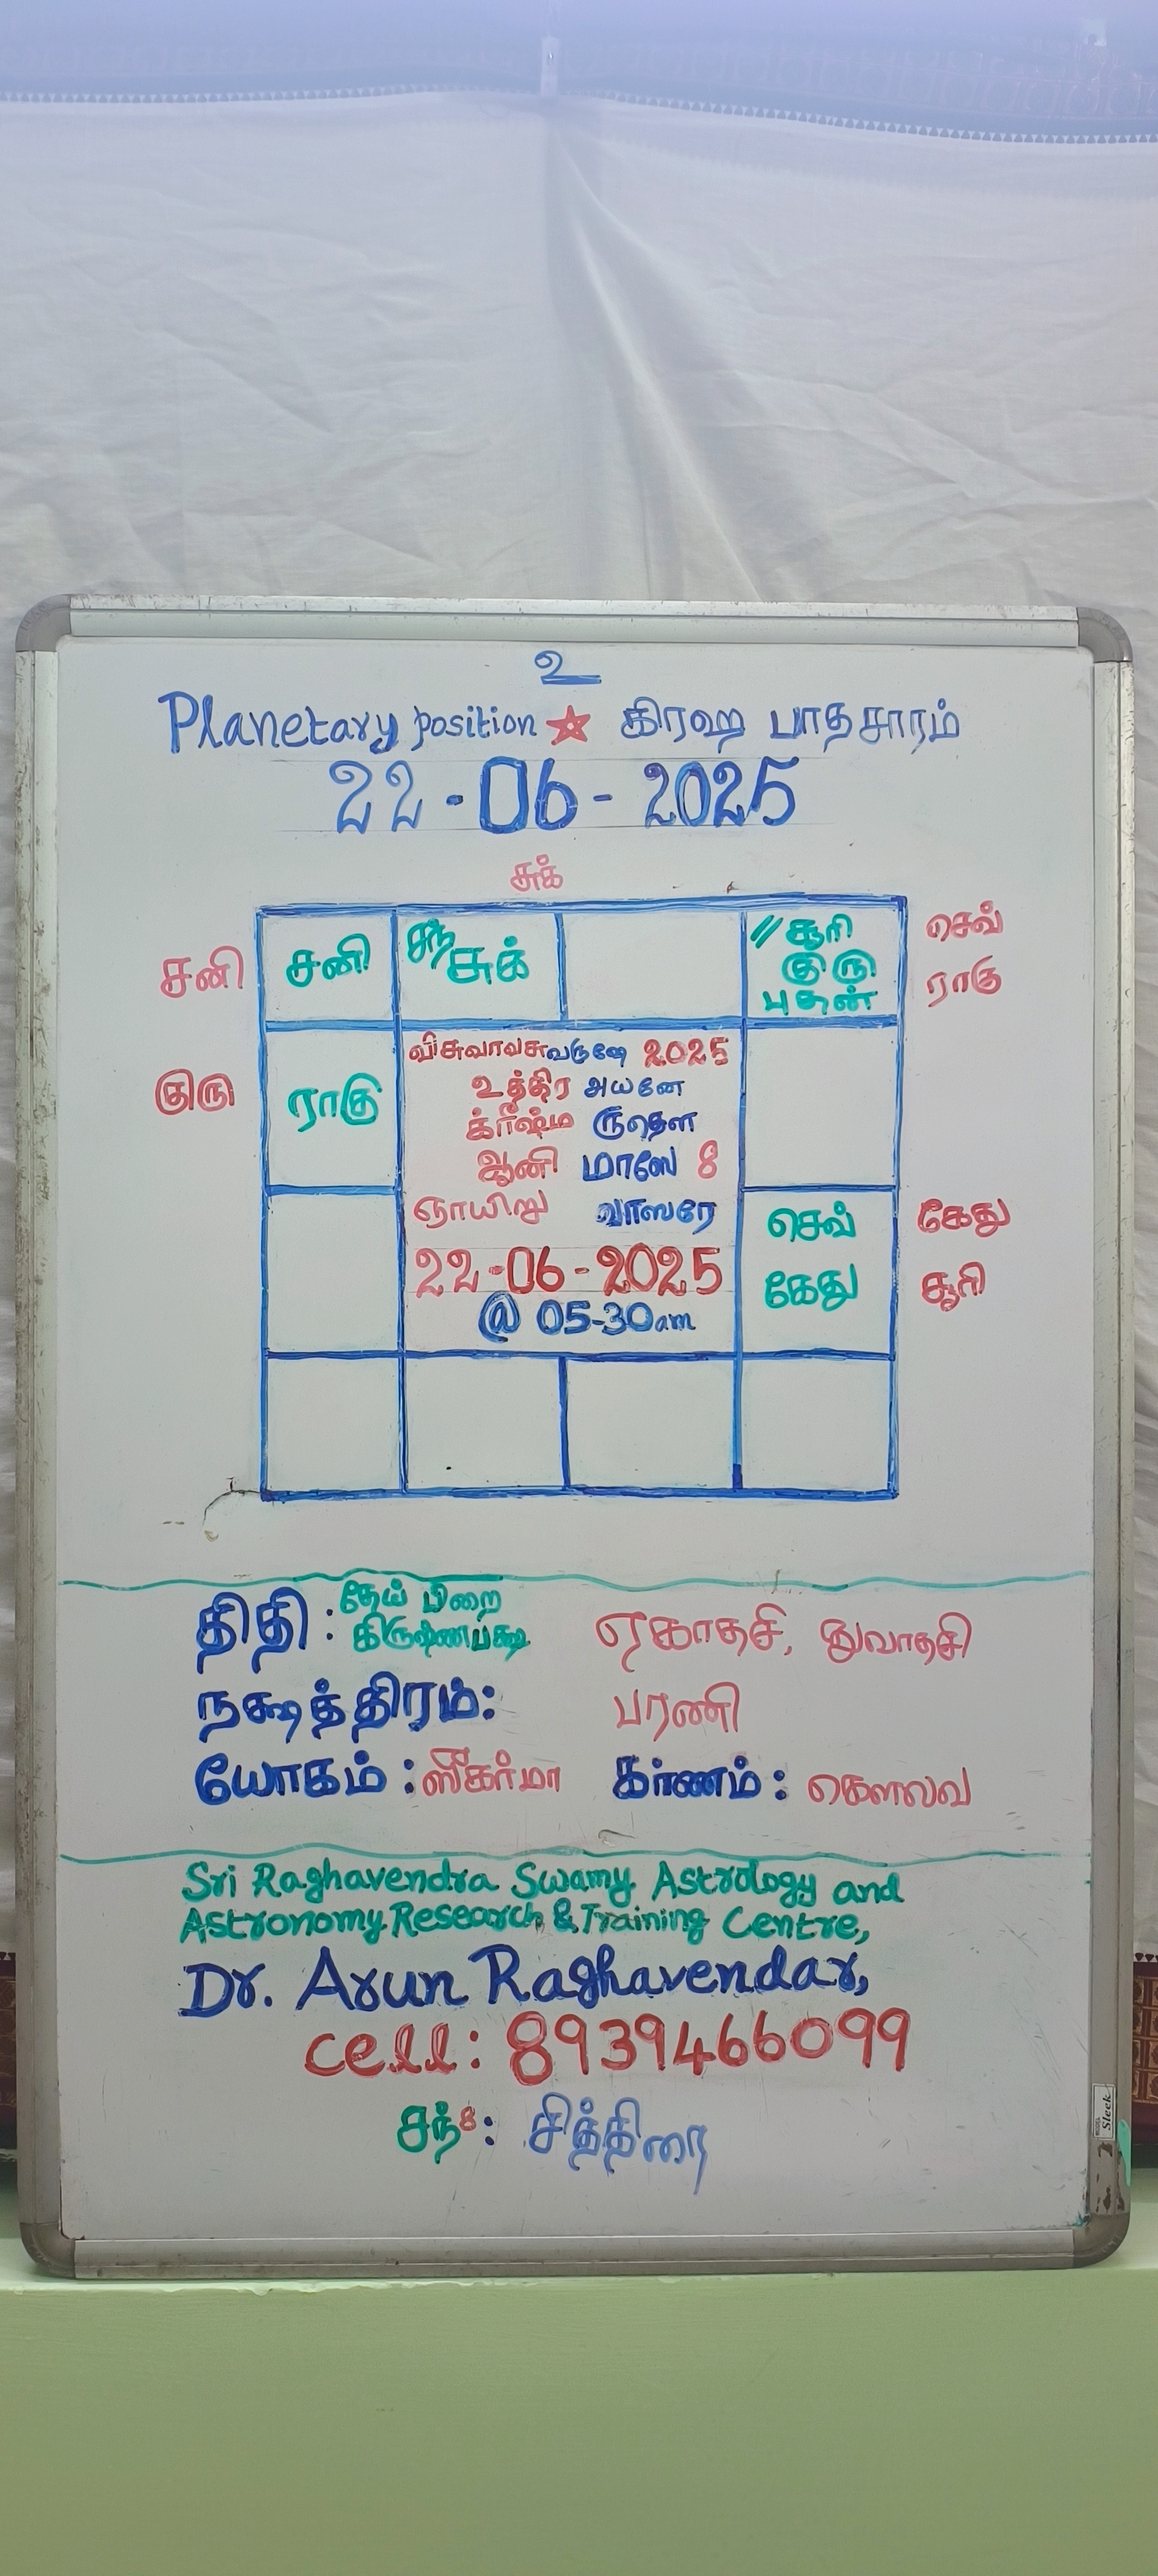 உ
Planetary position ★ கிரஹ பாதசாரம்
22-06-2025
சுக்
சனி
சனி
சந்
சுக்
// சூரி
குரு
புதன்
செவ்
ராகு
குரு
ராகு
விசுவாவசுவருஷே 2025
உத்திர அயனே
க்ரீஷ்ம ருதௌ
ஆனி மாஸே 8
ஞாயிறு வாஸரே
22-06-2025
@ 05-30am
செவ்
கேது
கேது
சூரி
திதி : தேய் பிறை
கிருஷ்ணபக்ஷ ஏகாதசி, துவாதசி
நக்ஷத்திரம்: பரணி
யோகம் : ஸீகர்மா கர்ணம் : கௌலவ
Sri Raghavendra Swamy Astrology and
Astronomy Research & Training Centre,
Dr. Arun Raghavendar,
cell: 8939466099
சந்8: சித்திரை
Sleek